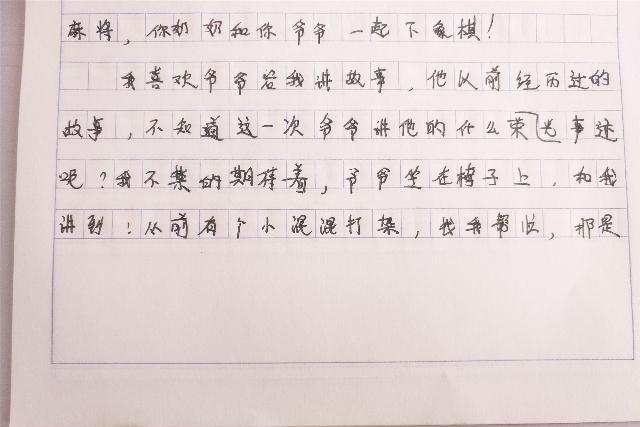 麻将，你奶奶和你爷爷一起下象棋！
我喜欢爷爷给我讲故事，他以前经历过的
故事，不知道这一次爷爷讲他的什么荣光事迹
呢？我不禁的期待着，爷爷坐在椅子上，和我
讲到：从前有个小混混打架，找我帮忙，那是